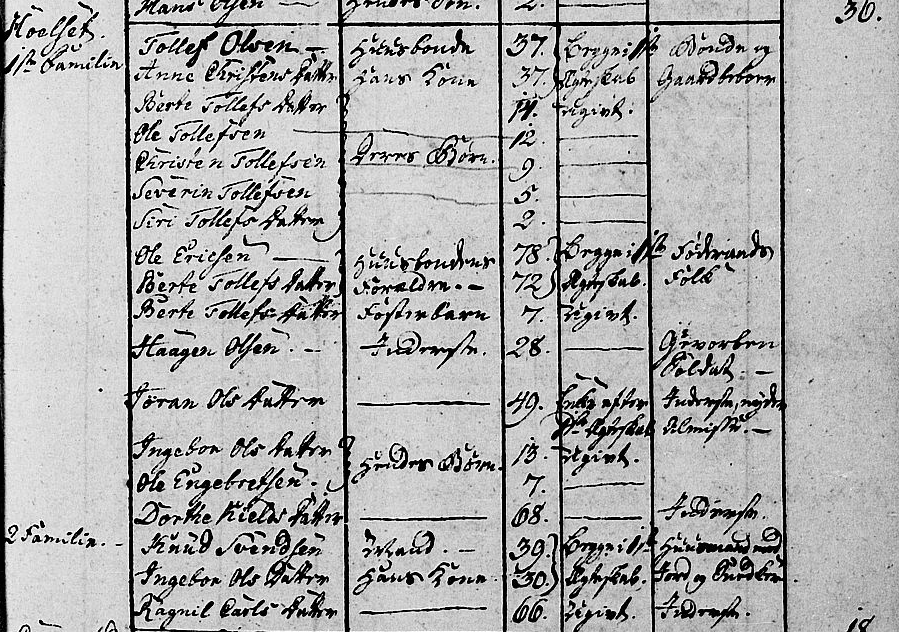 Hans Olsen — Hendes Søn. 2. — 36.
Hoelset.
1ste Familie Tollef Olsen — Huusbonde 37. Begge i 1ste Bonde og
Anne Christens Datter Hans Kone 37. Ægteskab Gaardbeboer
Berte Tollefs Datter 14. Ugivt.
Ole Tollefsen 12. —
Christen Tollefsen Deres Børn. 9. —
Severin Tollefsen 5. —
Siri Tollefs Datter 2. —
Ole Ericsen — Huusbondens 78. Begge i 1ste Føderaads
Berte Tollefs Datter Forældre. — 72 Ægteskab. Folk
Berte Tollefs Datter Fosterbarn 7. Ugivt.
Haagen Olsen. — Inderste. 28. — Gevorben
Soldat —
Jøran Ols Datter — 49. Enke efter Inderste, nyder
1ste Ægteskab Almisse. —
Ingebor Ols Datter 13. Ugivt.
Hendes Børn.
Ole Engebretsen. 7. —
Dorthe Kields Datter — 68. — Inderste.
2 Familie. — Knud Svendsen Mand. — 39 Begge i 1ste Huusmand med
Ingebor Ols Datter Hans Kone 30 Ægteskab. Jord og
Ragnil Carls Datter — 66. Ugivt. Inderste.
18